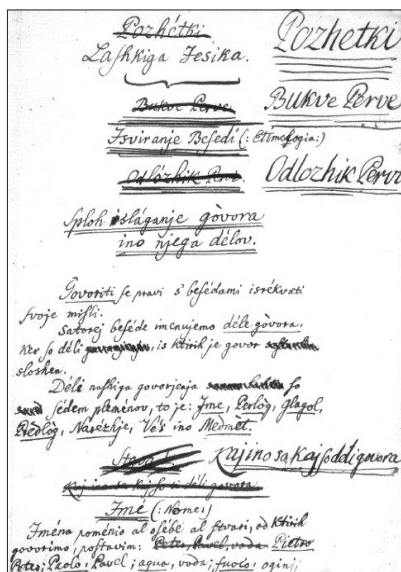 Pozhétki
Pozhetki
Lashkiga Jesika.
Bukve Perve
Bukve Perve
Isviranje Besedí (: Etÿmologia:)
Odlózhik Perv
Odlozhik Perve
Sploh isláganje gòvora
ino njega délov.
Govoriti se pravi s' besédami isrékvati
svoje misli.
Satorej beséde imenujemo déle gòvora,
Ker so déli is ktirih je govor
sloshen.
Déli nashiga govorjenja so
sédem plemenov, to je: Jme, Perlòg, Glagol,
Predlòg, Narézhje, Vés ino Medmèt.
Kaj ino sa kaj so déli govora
Kaj ino sa kaj so ti déli govora
Jmé (: Nome:)
Jména poménio al osébe al stvarí, od ktirih
govorimo, postavim: Peter, Pavel, voda Pietro
Peter; Paolo, Pavel; aqua, voda; fuoco, oginj,